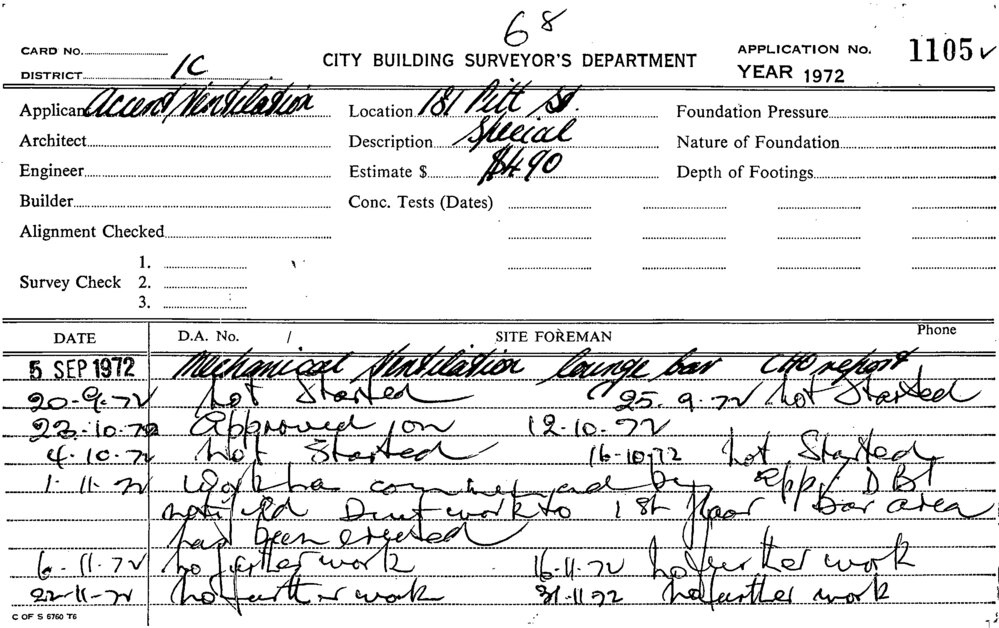 68
CARD No.
DISTRICT 1C
CITY BUILDING SURVEYOR'S DEPARTMENT
APPLICATION No. 1105
YEAR 1972
Applicant Accent Ventilation Location 181 Pitt St. Foundation Pressure
Architect Description Special Nature of Foundation
Engineer Estimate $ $490 Depth of Footings
Builder Conc. Tests (Dates)
Alignment Checked
1.
Survey Check 2.
3.
DATE D.A. No. / SITE FOREMAN Phone
5 SEP 1972 Mechanical Ventilation lounge bar CHO report
20-9-72 Not Started 25.9.72 Not Started
23-10-72 Approved on 12-10-72
4-10-72 Not Started 16-10-72 Not Started
1-11-72 Work has commenced by DBS
notified Ductwork to 1st floor bar area
has been erected
6-11-72 No further work 16-11-72 No further work
22-11-72 No further work 31-11-72 No further work
C OF S 6760 T6